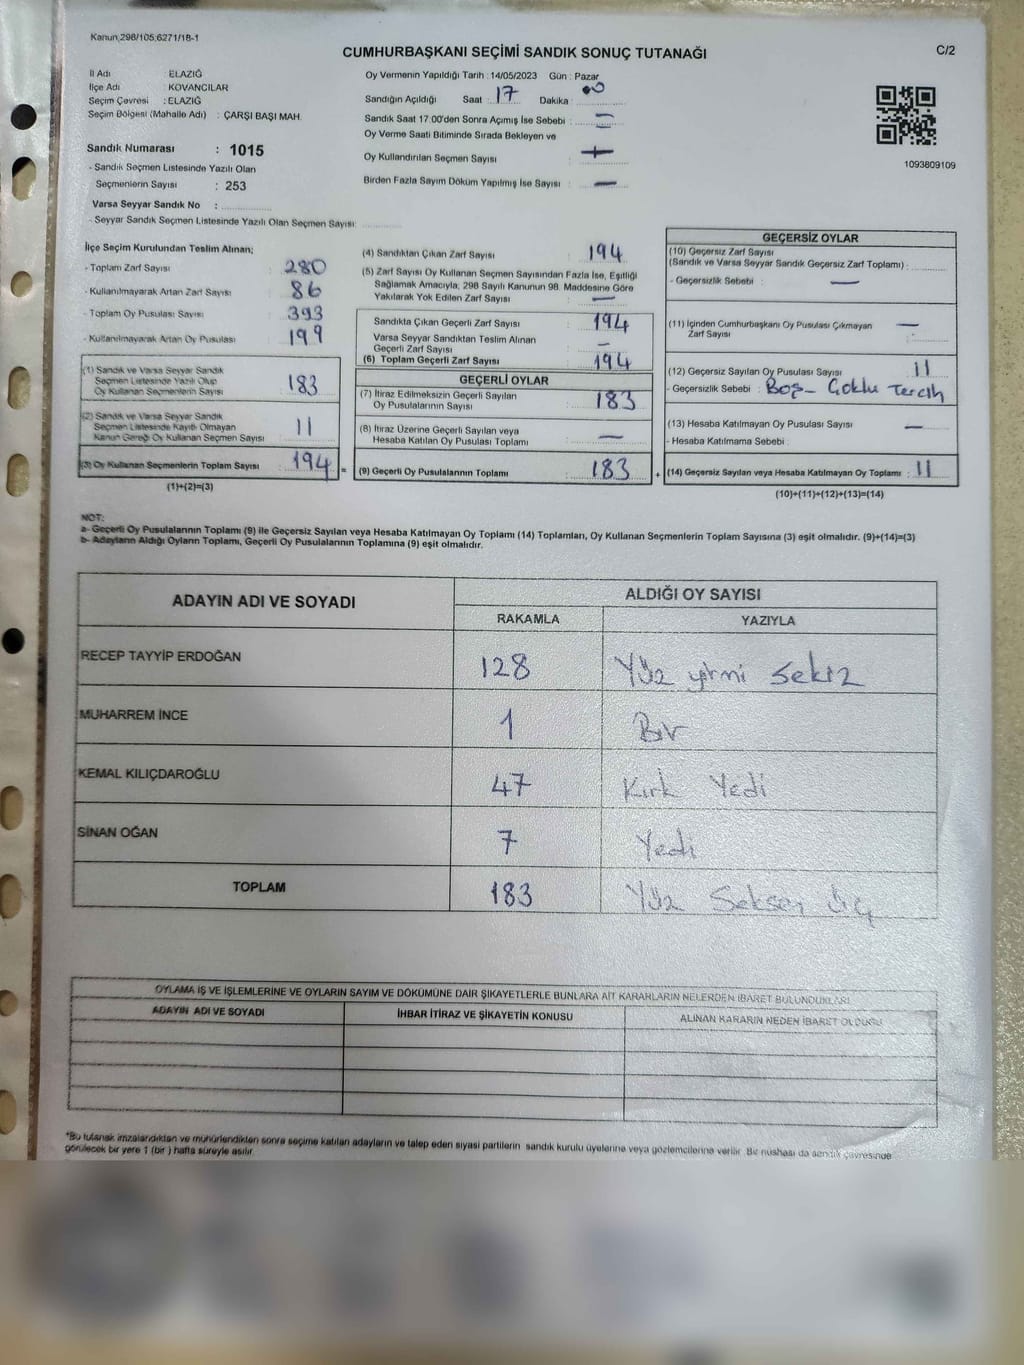 Kanun,298/105,6271/18-1
CUMHURBAŞKANI SEÇİMİ SANDIK SONUÇ TUTANAĞI
C/2
İl Adı : ELAZIĞ
İlçe Adı : KOVANCILAR
Seçim Çevresi : ELAZIĞ
Seçim Bölgesi (Mahalle Adı) : ÇARŞI BAŞI MAH.
Sandık Numarası : 1015
- Sandık Seçmen Listesinde Yazılı Olan
Seçmenlerin Sayısı : 253
Varsa Seyyar Sandık No :
- Seyyar Sandık Seçmen Listesinde Yazılı Olan Seçmen Sayısı:
Oy Vermenin Yapıldığı Tarih : 14/05/2023 Gün : Pazar
Sandığın Açıldığı Saat : 17 Dakika : 00
Sandık Saat 17:00'den Sonra Açımış İse Sebebi : —
Oy Verme Saati Bitiminde Sırada Bekleyen ve
Oy Kullandırılan Seçmen Sayısı : —
Birden Fazla Sayım Döküm Yapılmış İse Sayısı : —
1093809109
İlçe Seçim Kurulundan Teslim Alınan;
- Toplam Zarf Sayısı : 280
- Kullanılmayarak Artan Zarf Sayısı : 86
- Toplam Oy Pusulası Sayısı : 393
- Kullanılmayarak Artan Oy Pusulası : 199
(1) Sandık ve Varsa Seyyar Sandık
Seçmen Listesinde Yazılı Olup
Oy Kullanan Seçmenlerin Sayısı : 183
(2) Sandık ve Varsa Seyyar Sandık
Seçmen Listesinde Kayıtlı Olmayan
Kanun Gereği Oy Kullanan Seçmen Sayısı : 11
(3) Oy Kullanan Seçmenlerin Toplam Sayısı : 194 =
(1)+(2)=(3)
(4) Sandıktan Çıkan Zarf Sayısı : 194
(5) Zarf Sayısı Oy Kullanan Seçmen Sayısından Fazla İse, Eşitliği
Sağlamak Amacıyla, 298 Sayılı Kanunun 98. Maddesine Göre
Yakılarak Yok Edilen Zarf Sayısı : —
Sandıkta Çıkan Geçerli Zarf Sayısı : 194
Varsa Seyyar Sandıktan Teslim Alınan
Geçerli Zarf Sayısı : —
(6) Toplam Geçerli Zarf Sayısı : 194
GEÇERLİ OYLAR
(7) İtiraz Edilmeksizin Geçerli Sayılan
Oy Pusulalarının Sayısı : 183
(8) İtiraz Üzerine Geçerli Sayılan veya
Hesaba Katılan Oy Pusulası Toplamı : —
(9) Geçerli Oy Pusulalarının Toplamı : 183 +
GEÇERSİZ OYLAR
(10) Geçersiz Zarf Sayısı
(Sandık ve Varsa Seyyar Sandık Geçersiz Zarf Toplamı) :
- Geçersizlik Sebebi : —
(11) İçinden Cumhurbaşkanı Oy Pusulası Çıkmayan
Zarf Sayısı : —
(12) Geçersiz Sayılan Oy Pusulası Sayısı : 11
- Geçersizlik Sebebi : Boş - Çoklu Tercih
(13) Hesaba Katılmayan Oy Pusulası Sayısı : —
- Hesaba Katılmama Sebebi :
(14) Geçersiz Sayılan veya Hesaba Katılmayan Oy Toplamı : 11
(10)+(11)+(12)+(13)=(14)
NOT:
a- Geçerli Oy Pusulalarının Toplamı (9) ile Geçersiz Sayılan veya Hesaba Katılmayan Oy Toplamı (14) Toplamları, Oy Kullanan Seçmenlerin Toplam Sayısına (3) eşit olmalıdır. (9)+(14)=(3)
b- Adayların Aldığı Oyların Toplamı, Geçerli Oy Pusulalarının Toplamına (9) eşit olmalıdır.
ADAYIN ADI VE SOYADI ALDIĞI OY SAYISI
RAKAMLA YAZIYLA
RECEP TAYYİP ERDOĞAN 128 Yüz yirmi sekiz
MUHARREM İNCE 1 Bir
KEMAL KILIÇDAROĞLU 47 Kırk Yedi
SİNAN OĞAN 7 Yedi
TOPLAM 183 Yüz Seksen üç
OYLAMA İŞ VE İŞLEMLERİNE VE OYLARIN SAYIM VE DÖKÜMÜNE DAİR ŞİKAYETLERLE BUNLARA AİT KARARLARIN NELERDEN İBARET BULUNDUKLARI
ADAYIN ADI VE SOYADI İHBAR İTİRAZ VE ŞİKAYETİN KONUSU ALINAN KARARIN NEDEN İBARET OLDUĞU
*Bu tutanak imzalandıktan ve mühürlendikten sonra seçime katılan adayların ve talep eden siyasi partilerin sandık kurulu üyelerine veya gözlemcilerine verilir. Bir nüshası da sandık çevresinde
görülecek bir yere 1 (bir ) hafta süreyle asılır.